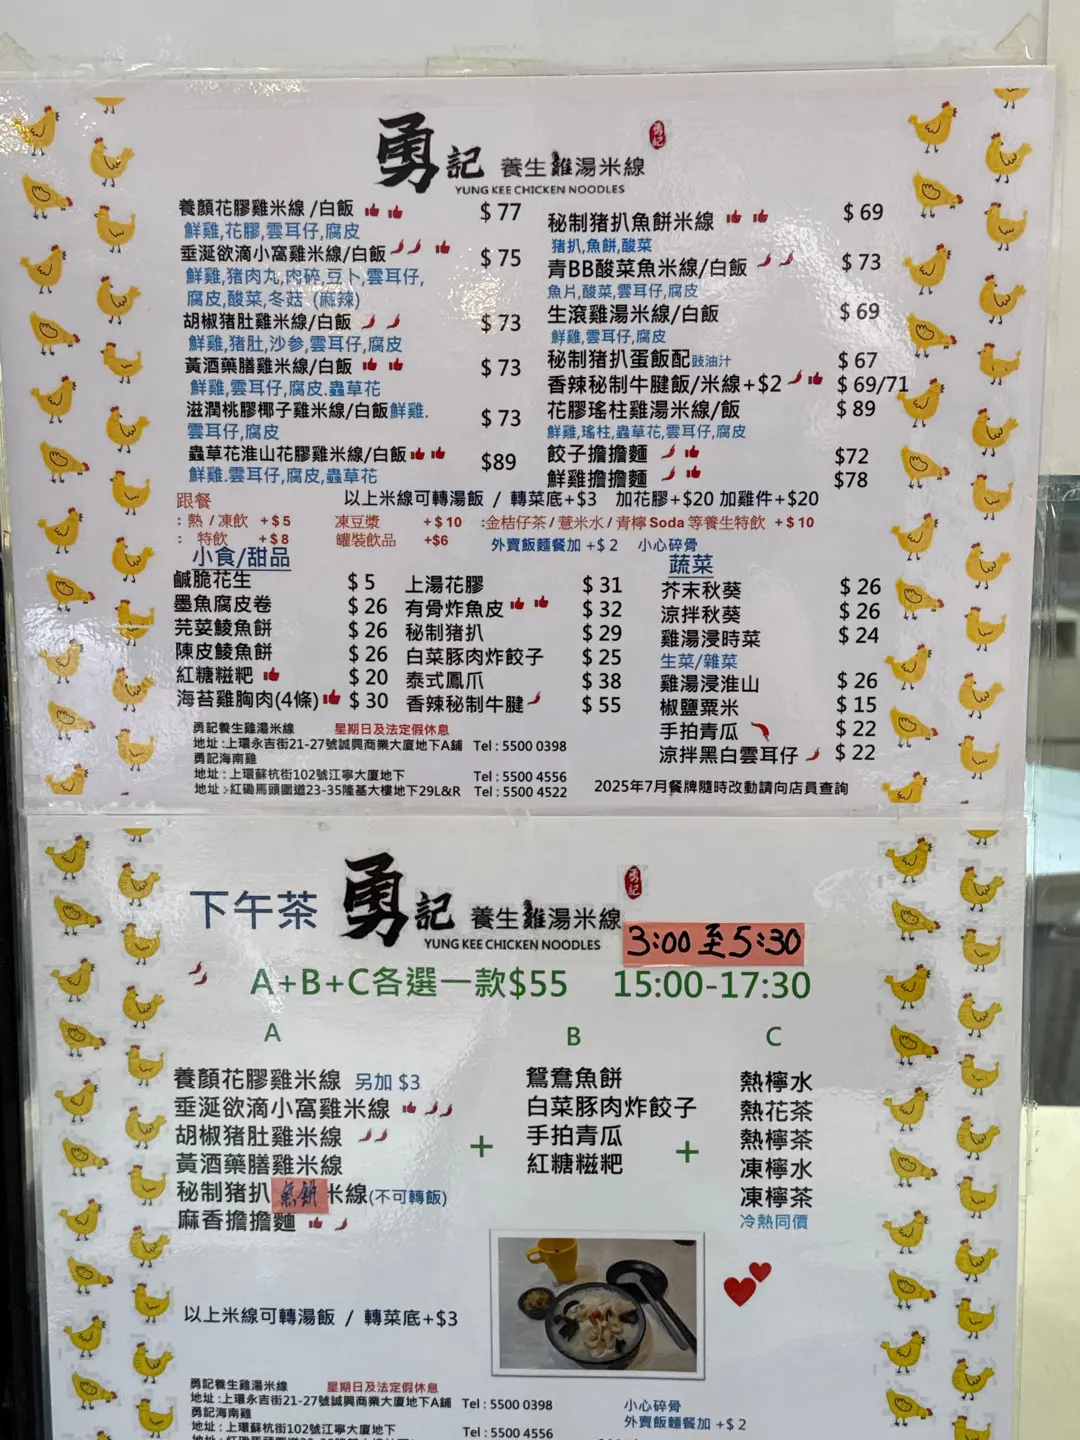 勇記 養生雞湯米線
勇記
YUNG KEE CHICKEN NOODLES
養顏花膠雞米線/白飯 $77
鮮雞,花膠,雲耳仔,腐皮
垂涎欲滴小窩雞米線/白飯 $75
鮮雞,猪肉丸,肉碎,豆卜,雲耳仔,
腐皮,酸菜,冬菇 (麻辣)
胡椒猪肚雞米線/白飯 $73
鮮雞,猪肚,沙參,雲耳仔,腐皮
黃酒藥膳雞米線/白飯 $73
鮮雞,雲耳仔,腐皮.蟲草花
滋潤桃膠椰子雞米線/白飯鮮雞. $73
雲耳仔,腐皮
蟲草花淮山花膠雞米線/白飯 $89
鮮雞.雲耳仔,腐皮,蟲草花
秘制猪扒魚餅米線 $69
猪扒,魚餅,酸菜
青BB酸菜魚米線/白飯 $73
魚片,酸菜,雲耳仔,腐皮
生滾雞湯米線/白飯 $69
鮮雞,雲耳仔,腐皮
秘制猪扒蛋飯配豉油汁 $67
香辣秘制牛腱飯/米線+$2 $69/71
花膠瑤柱雞湯米線/飯 $89
鮮雞,瑤柱,蟲草花,雲耳仔,腐皮
餃子擔擔麵 $72
鮮雞擔擔麵 $78
以上米線可轉湯飯 / 轉菜底+$3 加花膠+$20 加雞件+$20
跟餐
: 熱/凍飲 +$5 凍豆漿 +$10 :金桔仔茶/薏米水/青檸Soda等養生特飲 +$10
: 特飲 +$8 罐裝飲品 +$6 外賣飯麵餐加+$2 小心碎骨
小食/甜品
鹹脆花生 $5
墨魚腐皮卷 $26
芫荽鯪魚餅 $26
陳皮鯪魚餅 $26
紅糖糍粑 $20
海苔雞胸肉(4條) $30
上湯花膠 $31
有骨炸魚皮 $32
秘制猪扒 $29
白菜豚肉炸餃子 $25
泰式鳳爪 $38
香辣秘制牛腱 $55
蔬菜
芥末秋葵 $26
涼拌秋葵 $26
雞湯浸時菜 $24
生菜/雜菜
雞湯浸淮山 $26
椒鹽粟米 $15
手拍青瓜 $22
涼拌黑白雲耳仔 $22
勇記養生雞湯米線 星期日及法定假休息
地址:上環永吉街21-27號誠興商業大廈地下A鋪 Tel : 5500 0398
勇記海南雞
地址:上環蘇杭街102號江寧大廈地下 Tel : 5500 4556
地址:紅磡馬頭圍道23-35隆基大樓地下29L&R Tel : 5500 4522
2025年7月餐牌隨時改動請向店員查詢
下午茶 勇記 養生雞湯米線
勇記
YUNG KEE CHICKEN NOODLES
3:00至5:30
A+B+C各選一款$55 15:00-17:30
A
養顏花膠雞米線 另加 $3
垂涎欲滴小窩雞米線
胡椒猪肚雞米線
黃酒藥膳雞米線
秘制猪扒魚餅米線(不可轉飯)
麻香擔擔麵
+
B
鴛鴦魚餅
白菜豚肉炸餃子
手拍青瓜
紅糖糍粑
+
C
熱檸水
熱花茶
熱檸茶
凍檸水
凍檸茶
冷熱同價
以上米線可轉湯飯 / 轉菜底+$3
勇記養生雞湯米線 星期日及法定假休息
地址:上環永吉街21-27號誠興商業大廈地下A鋪 Tel : 5500 0398
勇記海南雞
地址:上環蘇杭街102號江寧大廈地下 Tel : 5500 4556
小心碎骨
外賣飯麵餐加+$2